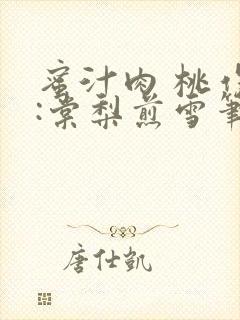 蜜汁肉桃作
:棠梨煎雪笔
唐仕凯